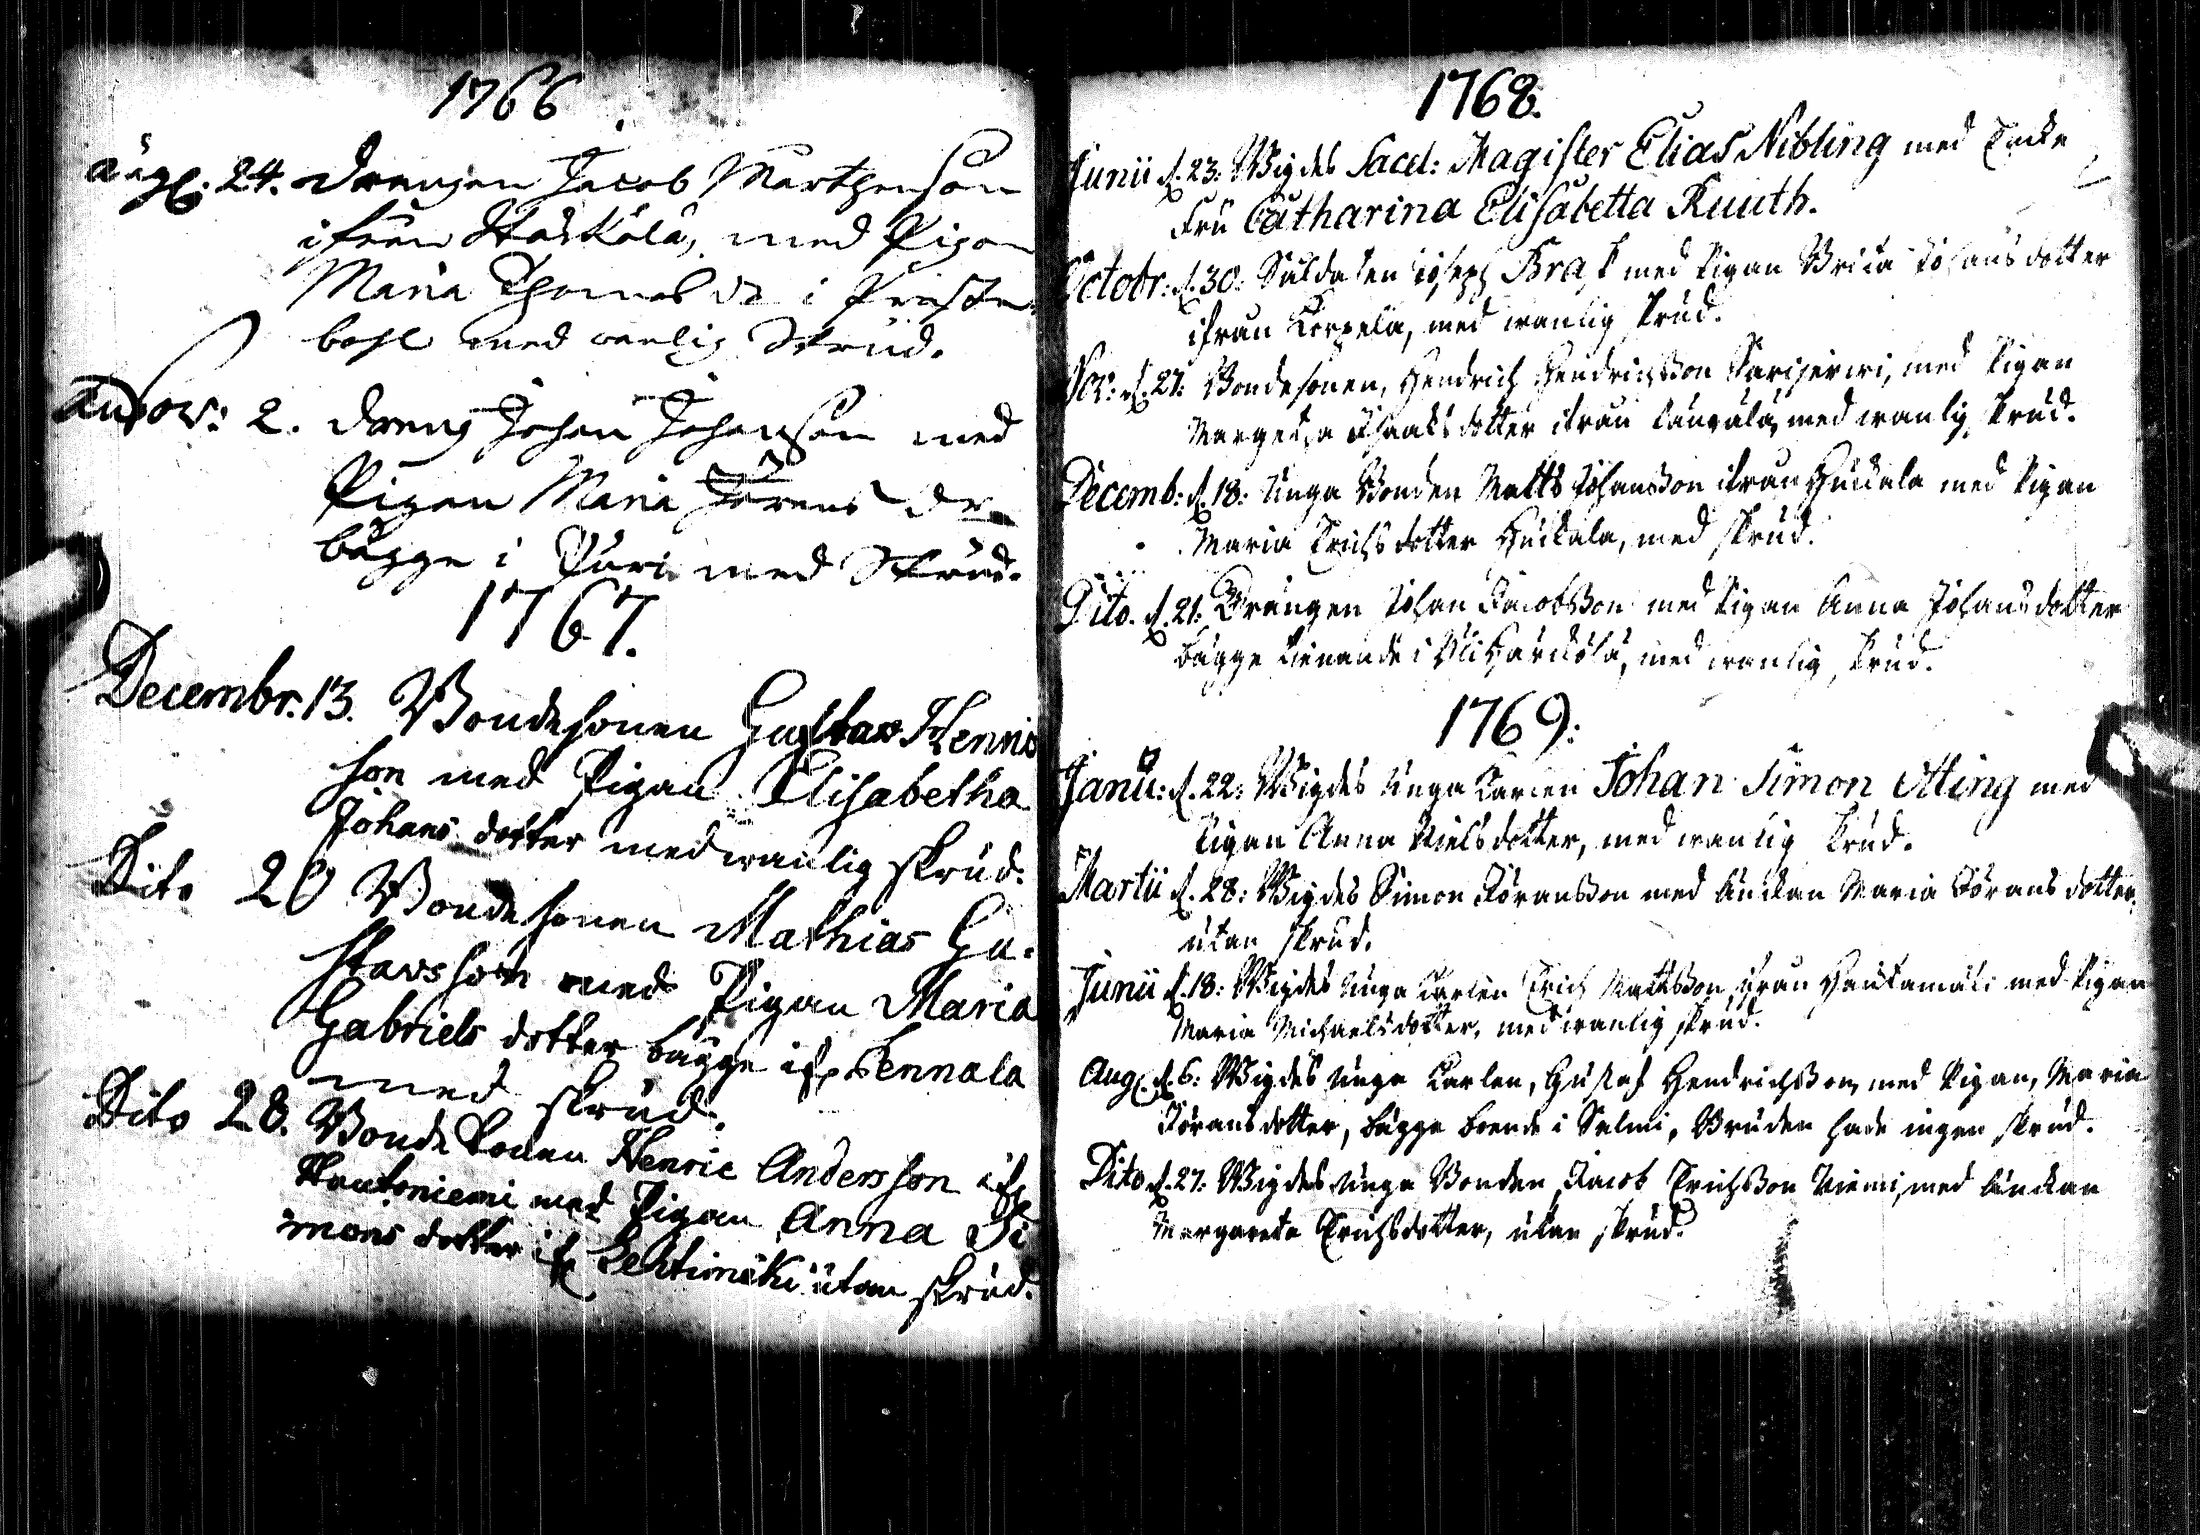 1766
Aug: 24. Drengen Jacob Marthenson
ifrån Haskåla, med Pigan
Maria Thomas dr i Preste
bohl med vanlig Skrud.
Nov: 2. Dreng Johan Johanson med
Pigan Maria Jörens dr
bägge i Puri med Skrud.
1767.
Decembr. 13. Bondesonen Gustav Henric
son med Pigan Elisabetha
Johans dotter med wanlig skrud.
Dito 20 Bondesonen Mathias Gu-
stavsson med Pigan Maria
Gabriels dotter bägge if. Tennala
med skrud.
Dito 28. Bonde Sonen Henric Andersson if
Kautoniemi med Pigan Anna Si
mons dotter if Lehtimäki utan skrud.
1768.
Junii d. 23: Wigdes Sacel: Magister Elias Nibling med Encke
Fru Catharina Elisabetta Kuuth.
Octobr: d. 30: Saldaten Joseph Brask med Pigan Brita Johansdotter
ifrån Korpela, med wanlig Skrud.
Nov: d. 27: Bondesonen, Hendrich Hendrichsson Sarijerwi, med Pigan
Margetha Isaaksdotter ifrån Kaupala, med wanlig Skrud.
Decemb: d. 18: Unga Bonden Matts Johansson ifrån Huckala med Pigan
Maria Erichsdotter Huckala, med skrud.
Dito. d. 21: Drängen Johan Jacobsson med Pigan Anna Johansdotter
bägge tienande i Yli Härckölä, med wanlig, Skrud.
1769:
Janu: d. 22: Wigdes Unga Karlen Johan Simon Eting med
Pigan Anna Nielsdotter, med wanlig Skrud.
Martii d. 28: Wigdes Simon Göransson med Änckan Maria Görans dotter,
utan skrud.
Junii d. 18: Wigdes Unga Karlen Erich Mattsson, ifrån Hautamäki med Pigan
Maria Michaelsdotter, med wanlig skrud.
Aug. d. 6: Wigdes Unga Karlen, Gustaf Hendrichsson, med Pigan, Maria
Göransdotter, bägge boende i Salmi, Bruden hade ingen skrud.
Dito d. 27: Wigdes Unga Bonden, Jacob Erichsson Niemi, med Änckan
Margareta Erichsdotter, utan skrud.